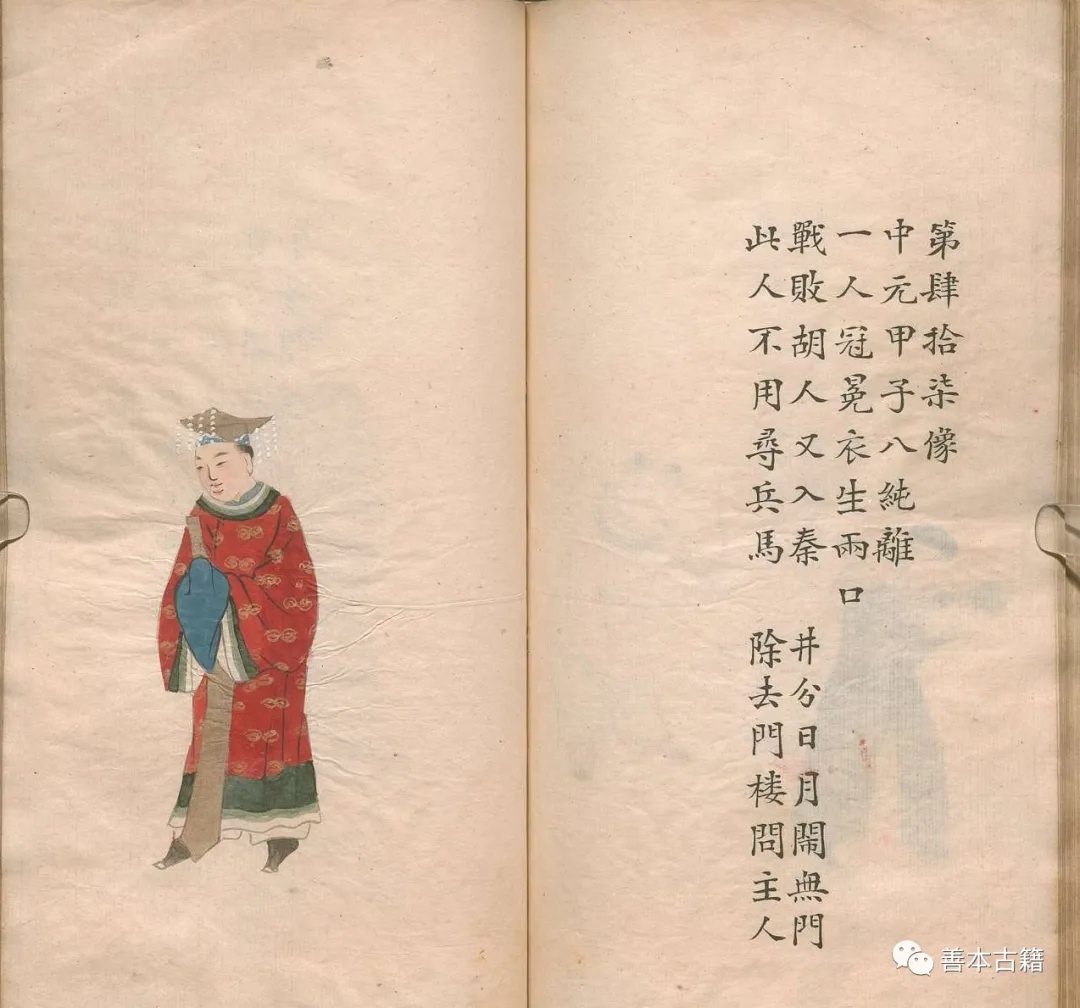 第肆拾柒像
中元甲子八純離
一人冠冕衣生兩口
戰敗胡人又入秦 井分日月鬧無門
此人不用尋兵馬 除去門楼問主人
善本古籍